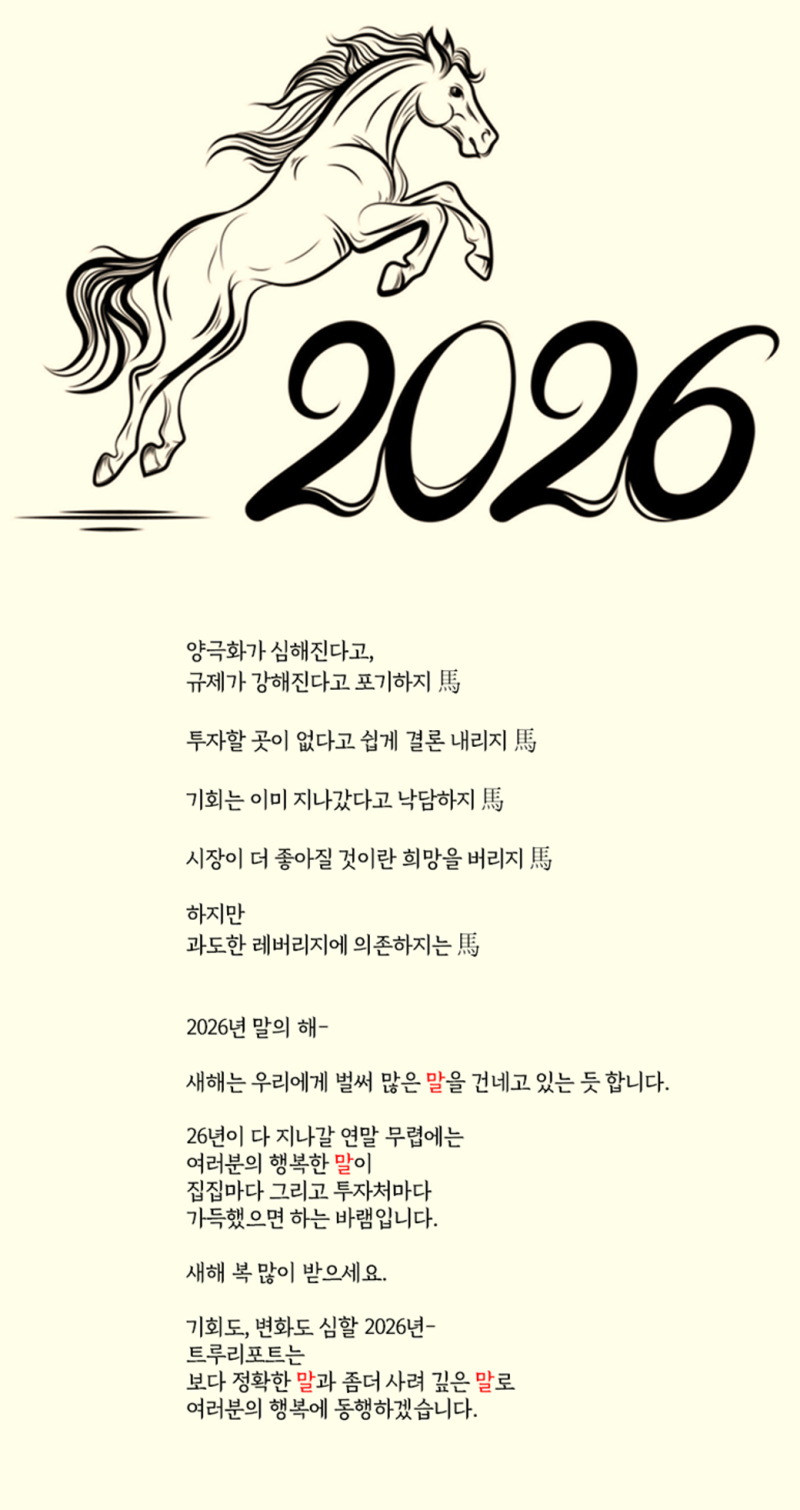 2026
양극화가 심해진다고,
규제가 강해진다고 포기하지 馬
투자할 곳이 없다고 쉽게 결론 내리지 馬
기회는 이미 지나갔다고 낙담하지 馬
시장이 더 좋아질 것이란 희망을 버리지 馬
하지만
과도한 레버리지에 의존하지는 馬
2026년 말의 해-
새해는 우리에게 벌써 많은 말을 건네고 있는 듯 합니다.
26년이 다 지나갈 연말 무렵에는
여러분의 행복한 말이
집집마다 그리고 투자처마다
가득했으면 하는 바램입니다.
새해 복 많이 받으세요.
기회도, 변화도 심할 2026년-
트루리포트는
보다 정확한 말과 좀더 사려 깊은 말로
여러분의 행복에 동행하겠습니다.